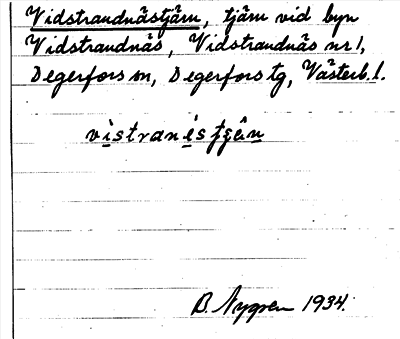 Vidstrandnästjärn, tjärn vid byn
Vidstrandnäs, Vidstrandnäs nr 1,
Degerfors sn, Degerfors tg, Västerb. l.
vistranestjän
B. Nygren 1934.